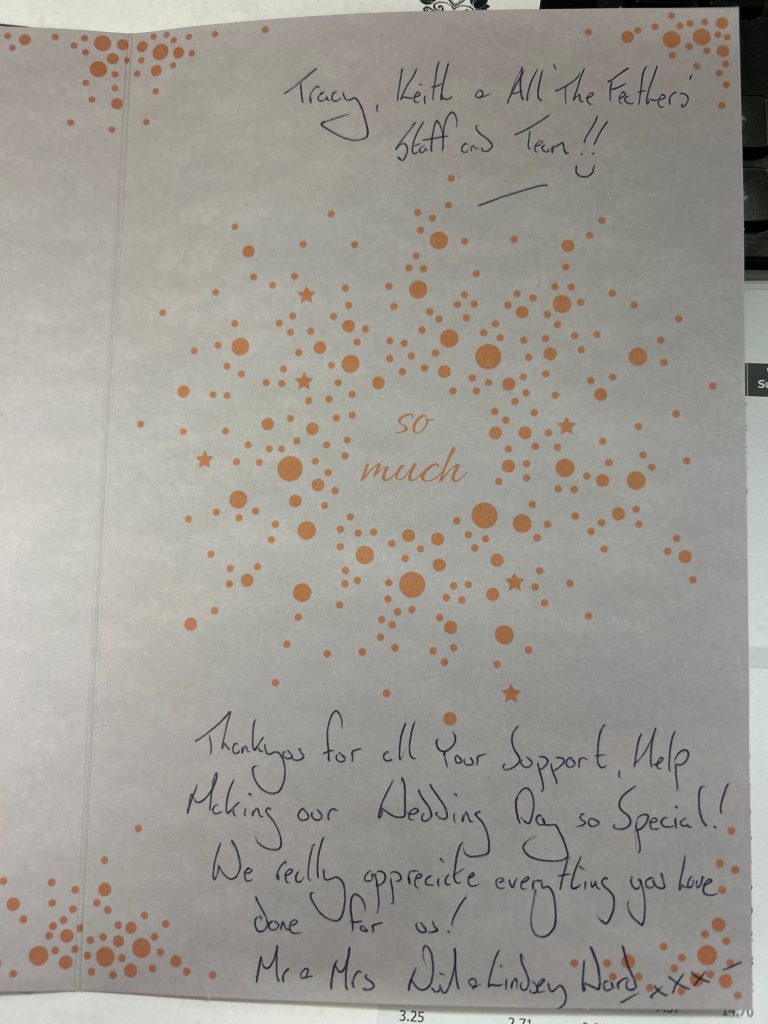 Tracy, Keith & All 'The Feathers'
Staff and Team!!
so
much
Thankyou for all Your Support, Help
Making our Wedding Day so Special!
We really appreciate everything you have
done for us!
Mr & Mrs Neil & Lindsey Ward xxx
3.25
2.71
14.70
Su